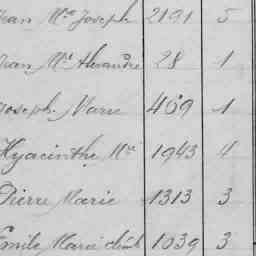 Jean Mie Joseph 2191 5
Jean Mie Alexandre 28 1
Joseph Marie 409 1
Hyacinthe Mie 1943 4
Pierre Marie 1313 3
Emile Marie 1039 3